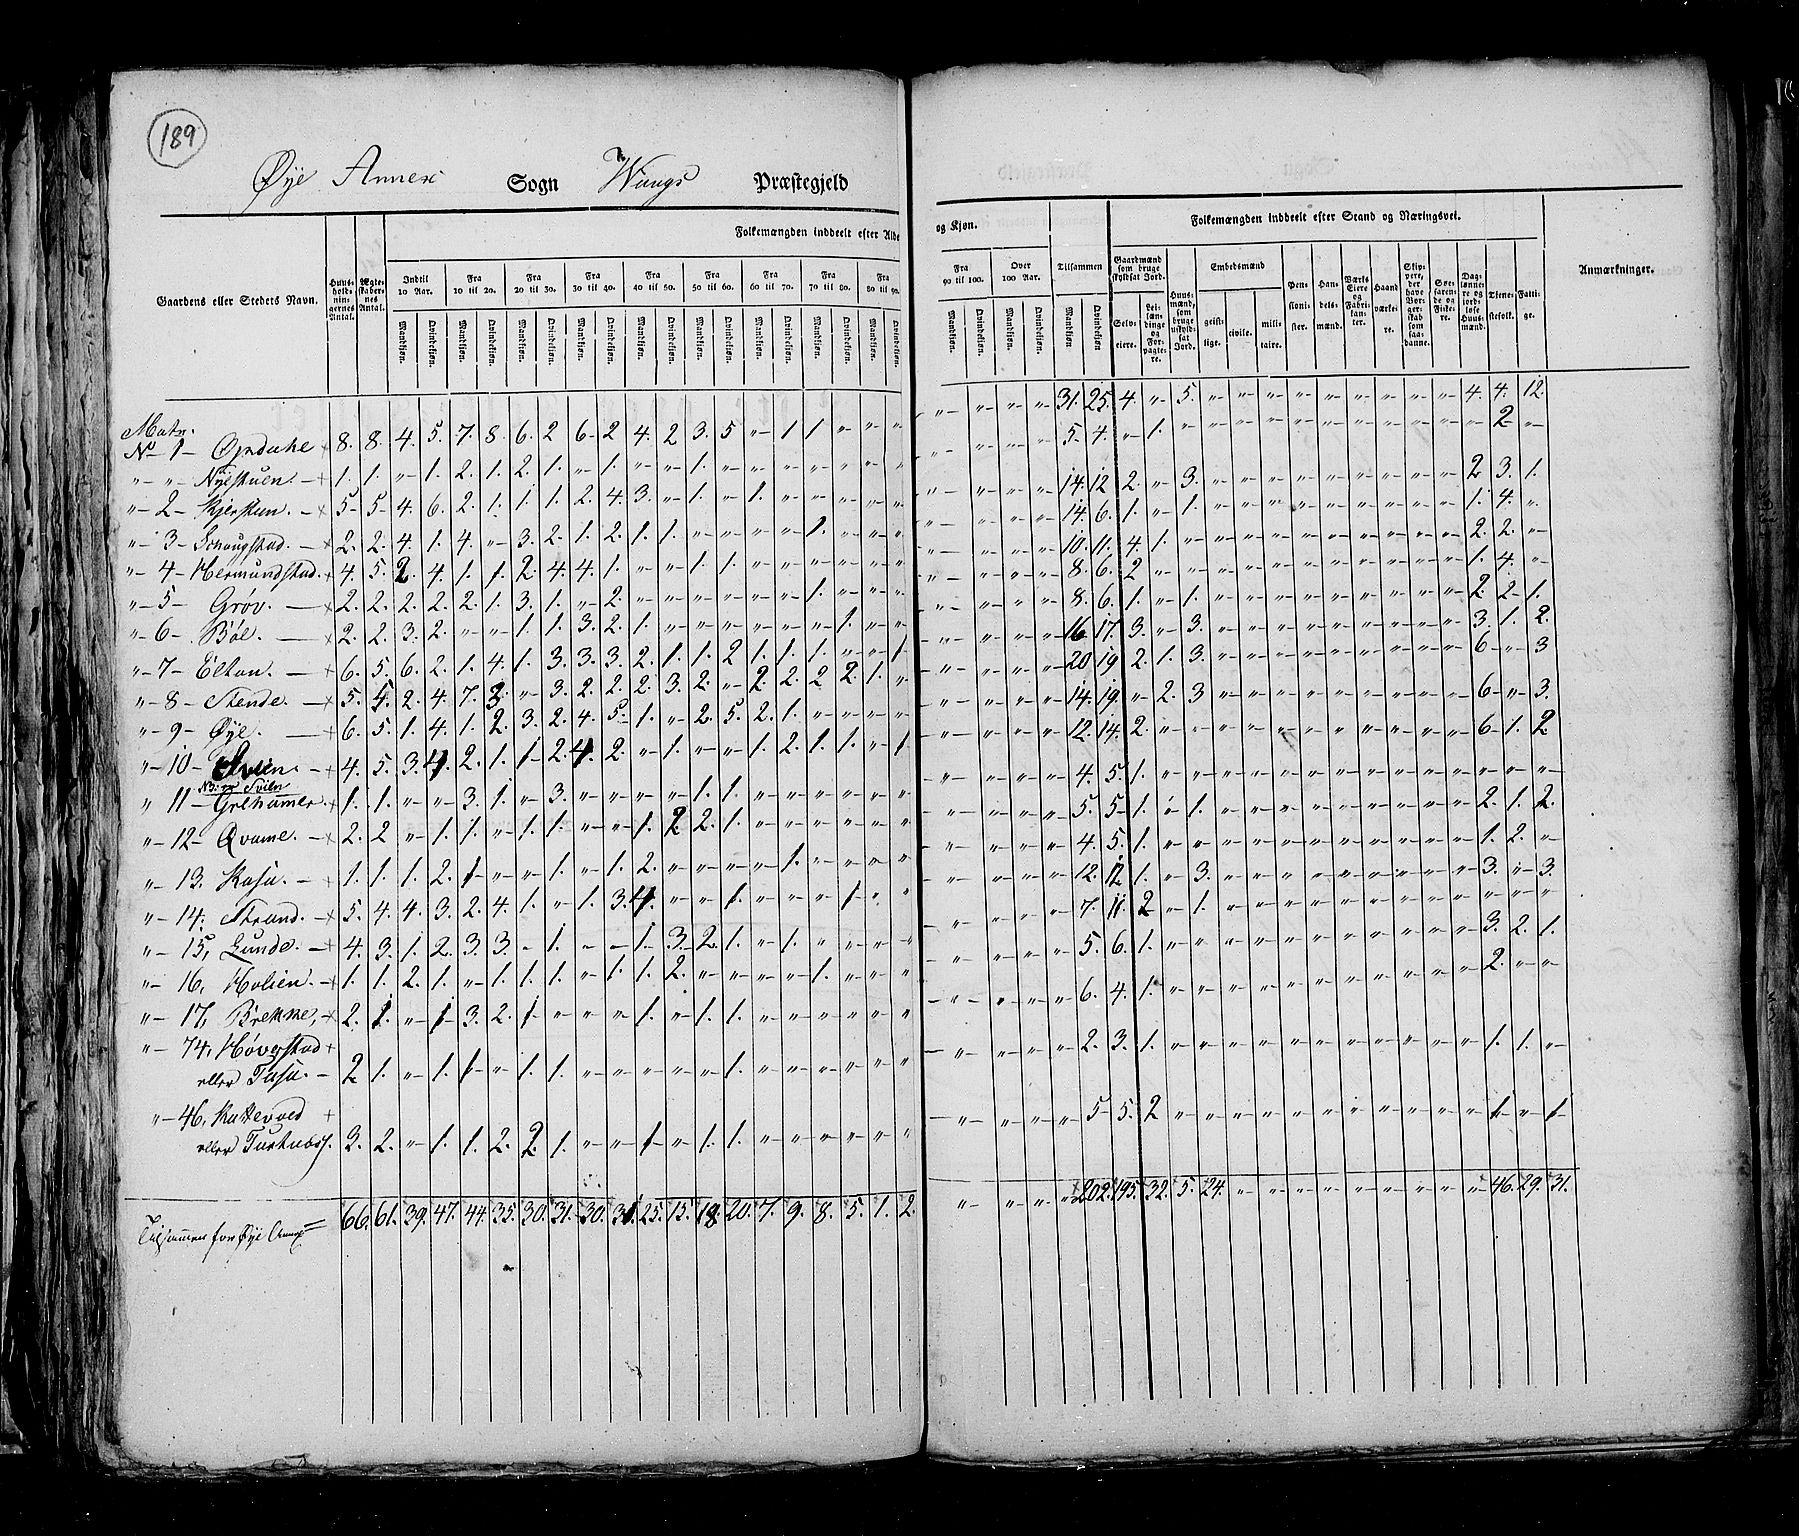 189
Øye Annex Sogn Wangs Præstegjeld
Gaardens eller Stedets Navn. Huusholdningernes Antal. Ægteskabernes Antal. Folkemængden inddeelt efter Alder og Kjøn. Tilsammen Folkemængden inddeelt efter Stand og Næringsvei. Anmærkninger.
Indtil 10 Aar. Fra 10 til 20. Fra 20 til 30. Fra 30 til 40. Fra 40 til 50. Fra 50 til 60. Fra 60 til 70. Fra 70 til 80. Fra 80 til 90. Fra 90 til 100. Over 100 Aar.
Mandkjøn. Qvindekjøn.
Gaardmænd som bruge skyldsat Jord. Selveiere. Leilændinge og Forpagtere. Huusmænd, som bruge uskyldsat Jord. Embedsmænd geistlige. civile. militaire. Pensionister. Handelsmænd. Værks Eiere og Fabrikanter. Haandværkere. Skippere, der have Borgerskab som saadanne. Søefarende og Fiskere. Daglønnere og jordløse Huusmænd. Tjenestefolk. Fattige.
Matr.
No 1 Opdahe 8. 8. 4. 5. 7. 8. 6. 2 6. 2 4. 2 3. 5 " 1 1. " " " " " " " 31. 25. 4. " 5. " " " " " " " " " 4. 4. 12.
" " Nyestuen. 1. 1. " 1. 2. 1. 2. 1. " 1. " " 1. " " " " " " " " " " " 5. 4. " 1. " " " " " " " " " " " 2. "
" 2 Kjerstun. 5 5 4. 6. 2. 1. 1. 1. 2. 4. 3. " 1. " 1. " " " " " " " " " 14. 12 2. " 3. " " " " " " " " " 2 3. 1.
" 3 Schougstad. 2. 2. 4. 1. 4. " 3. 2. 1. 2. 1. 1. " " " " 1. " " " " " " " 14. 6. 1. " 1. " " " " " " " " " 1. 4. "
" 4 Hermundstad. 4. 5. 2. 4. 1. 1. 2. 4. 4. 1. " " 1. 1. " " " " " " " " " " 10. 11. 4. 1. " " " " " " " " " " 2. 2. "
" 5 Grøv. 2. 2. 2. 2. 2. 1. 3. 1. " 2. " " " " " " 1. " " " " " " " 8. 6. 2 " " " " " " " " " " " 1. 4. "
" 6 Bøe. 2. 2. 3. 2. " " 1. 1. 3. 2. 1. " " " " " " 1. " " " " " " 8. 6. 1. " 1. " " " " " " " " " 2. 2 1.
" 7 Elton. 6. 5. 6. 2. 1. 4. 1. 3. 3. 3. 2. 1. 1. 2 1. 1. 1. " " 1 " " " " 16. 17. 3. " 3. " " " " " " " " " 3. 1. 2.
" 8 Stende. 5. 5. 2. 4. 7. 3. " 3. 2. 2. 2. 3. 2. " 2. 2. 2 2. 1. " " " " " 20 19 2. 1. 3. " " " " " " " " " 6 " 3
" 9 Øye. 6. 5. 1. 4. 1. 2. 3. 2. 4. 5. 1. " 2. 5. 2. 1. " " " " " " " " 14. 19. " 2. 3 " " " " " " " " " 6 " 3.
" 10 Svien. 4. 5. 3. 4. 2. 1. 1 2. 4. 2. " 1. " " 1. 2. 1. 1. " 1 " " " " 12. 14. 2. " " " " " " " " " " " 6. 1. 2
" 11 Grihamer 1. 1. " " 3. 1. " 3. " " " " 1. 1. " " " " " " " " " " 4. 5. 1. " " " " " " " " " " " " " "
" 12 Qvame. 2. 2 " 1. 1. " 1. 1. " " 1. 2 2. 1. " " " " " " " " " " 5. 5 1. " 1. " " " " " " " " " 2. 1. 2.
" 13. Kasa. 1. 1. 1. 2. 1 " " 1. " 1. 2. " " " " 1. " " " " " " " " 4. 5. 1. " " " " " " " " " " " 1. 2. "
" 14. Strand. 5. 4. 4. 3. 2. 4. 1. " 1. 3. 4. " " 1. " " " 1 " " " " " " 12. 12 1. " 3. " " " " " " " " " 3. " 3.
" 15, Lunde. 4. 3. 1. 2. 3. 3. " 1. " " 1. 3. 2. 1. " 1. " " " " " " " " 7. 11. 2 " 1. " " " " " " " " " " " "
" 16, Holien. 1. 1. 2. 1. " 1. 1. 1. " 1. 1. 2. " " " " 1. " " " " " " " 5. 6. 1. " " " " " " " " " " " 3. 2. 1.
" 17, Brekke, 2. 1. " 1 3. 2. 1 " " " 1. " 1. 1. " " " " " " " " " " 6. 4. 1. " " " " " " " " " " " 2. " "
" 74, Høverstad
eller Tasa. 2. 1. " 1. 1 " 1. 1. " " " " " 1. " " " " " " " " " " 2. 3. 1. " " " " " " " " " " " 1. 1. "
" 46,
eller 3. 2. " 1. 1. 2. 2. 1. " " 1 " 1. 1. " " " " " " " " " " 5 5. 2 " " " " " " " " " " " 1 " 1
Tilsammen for Øye Annex 66. 61. 39. 47. 44. 35. 30. 31. 30. 31. 25. 15. 18. 20. 7. 9. 8. 5. 1. 2. " " " " 202. 195. 32. 5. 24. " " " " " " " " " 46. 29. 31.